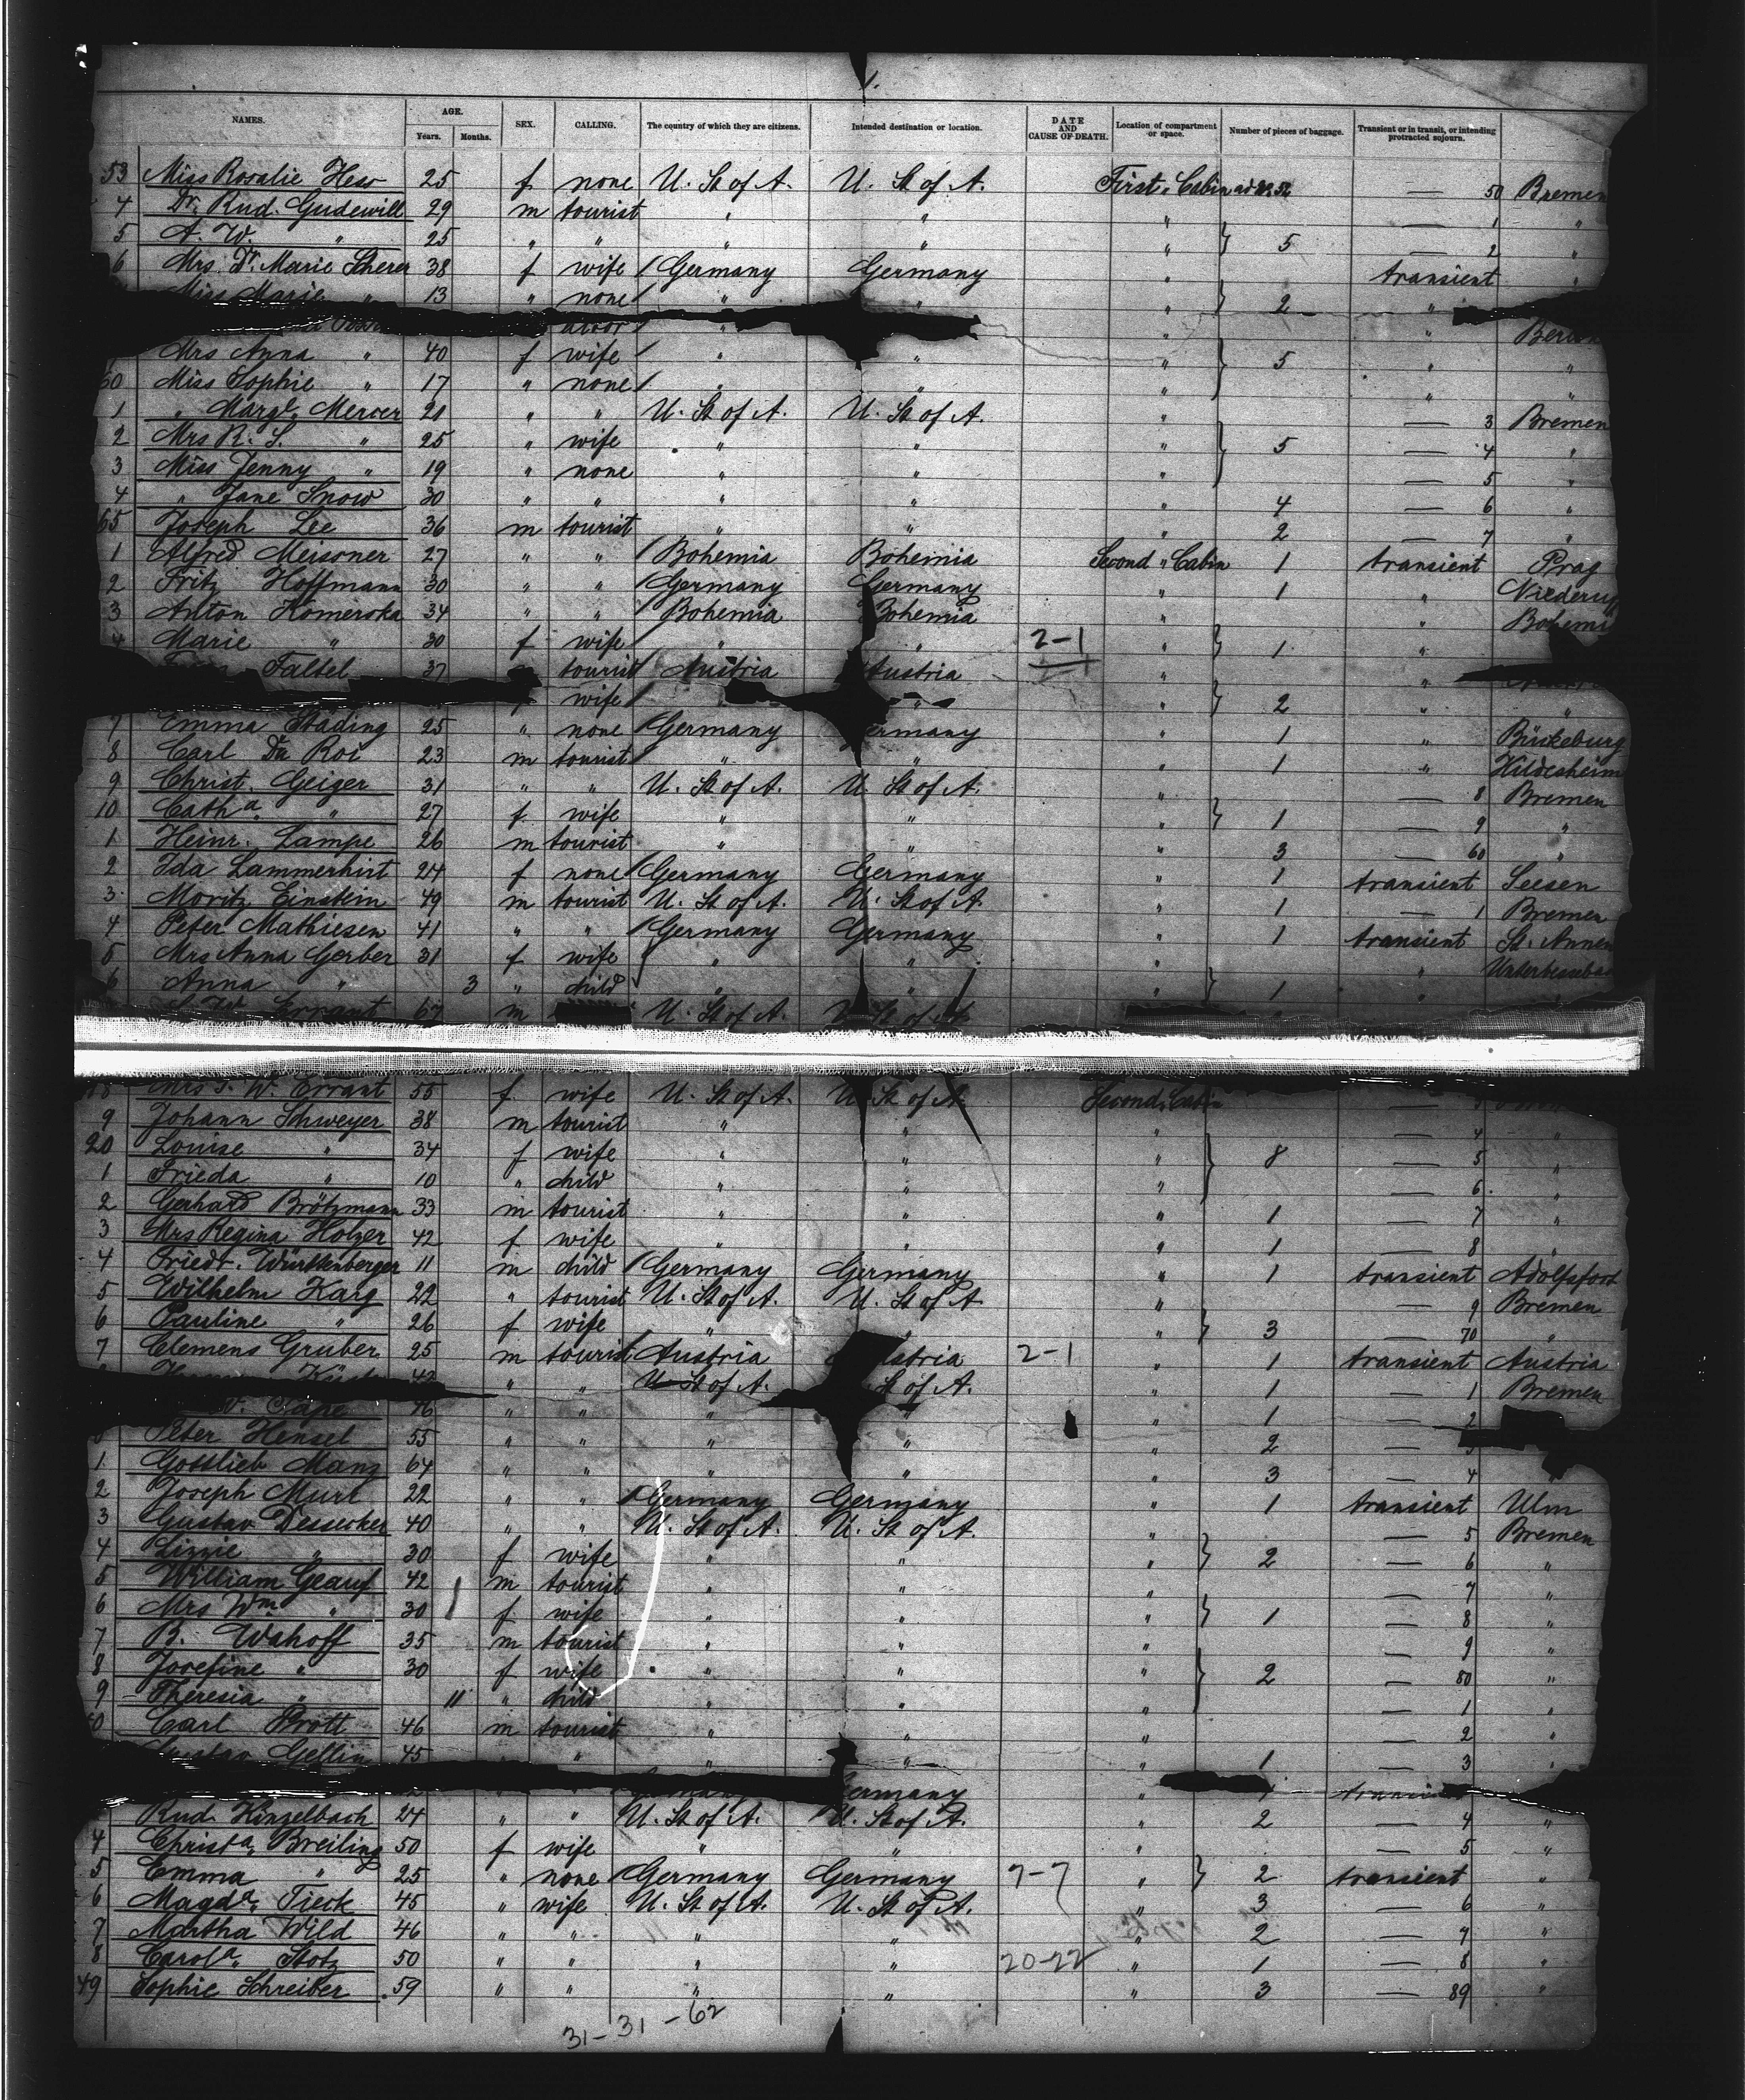 1.
NAMES. AGE. Years. Months. SEX. CALLING. The country of which they are citizens. Intended destination or location. DATE AND CAUSE OF DEATH. Location of compartment or space. Number of pieces of baggage. Transient or in transit, or intending protracted sojourn.
53 Miss Rosalie Hess 25 f none U. St of A. U. St of A. First Cabin — 50 Bremen
4 Dr. Rud. Gudewill 29 m tourist " " " — 1 "
5 A. W. " 25 " " " " " } 5 — 2 "
6 Mrs. Dr. Marie Scherer 38 f wife / Germany Germany " transient "
Miss Marie " 13 " none / " " " } 2 "
/ " "
Mrs Anna " 40 f wife / " " " } 5 " "
60 Miss Sophie " 17 " none / " " " " "
1 " Margt. Mercer 21 " " U. St of A. U. St of A. " — 3 Bremen
2 Mrs R. S. " 25 " wife " " " } 5 — 4 "
3 Miss Jenny " 19 " none " " " — 5 "
4 " Jane Snow 30 " " " " " 4 — 6 "
65 Joseph Lee 36 m tourist " " " 2 — 7 "
1 Alfred Meissner 27 " " / Bohemia Bohemia Second " Cabin 1 transient Prag
2 Fritz Hoffmann 30 " " / Germany Germany " 1 "
3 Anton Komerska 34 " " / Bohemia Bohemia " "
4 Marie " 30 f wife / " " 2-1 " } 1 "
Faltel 37 tourist / Austria Austria " "
wife / " " } 2 " "
7 Emma Städing 25 " none / Germany Germany " 1 " Bückeburg
8 Carl Du Roi 23 m tourist / " " " 1 " Hildesheim
9 Christ. Geiger 31 " " U. St of A. U. St of A. " — 8 Bremen
10 Catha. " 27 f wife " " " } 1 — 9 "
1 Heinr. Lampe 26 m tourist " " " 3 — 60 "
2 Ida Lammerhirt 24 f none / Germany Germany " 1 transient Seesen
3 Moritz Einstein 49 m tourist U. St of A. U. St of A. " 1 — 1 Bremen
4 Peter Mathiesen 41 " " / Germany Germany " 1 transient St. Annen
5 Mrs Anna Gerber 31 f wife / " " "
6 Anna " 3 " child " " " } 1 "
Errant 67 m U. St of A. U. St of A.
Mrs S. W. Errant 55 f wife U. St of A. U. St of A. Second Cabin
9 Johann Schweyer 38 m tourist " " " — 4 "
20 Louise " 34 f wife " " " } 8 — 5 "
1 Frieda " 10 " child " " " — 6 "
2 Gerhard Brötzmann 33 m tourist " " " 1 — 7 "
3 Mrs Regina Holzer 42 f wife " " " 1 — 8 "
4 Friedr. Württenberger 11 m child / Germany Germany " 1 transient
5 Wilhelm Karg 22 " tourist U. St of A. U. St of A " — 9 Bremen
6 Pauline " 26 f wife " " } 3 — 70 "
7 Clemens Gruber 25 m tourist / Austria Austria 2-1 " 1 transient Austria
42 " " U. St of A. St of A. " 1 — 1 Bremen
Pape 46 " " " " " 1 — 2
Peter Hensel 55 " " " " " 2 —
1 Gottlieb Manz 64 " " " " " 3 — 4 "
2 Joseph Murl 22 " " / Germany Germany " 1 transient Ulm
3 Gustav Dessecker 40 " " U. St of A. U. St of A. " — 5 Bremen
4 Lizzie " 30 f wife " " " } 2 — 6 "
5 William Geauf 42 m tourist " " — 7 "
6 Mrs Wm " 30 f wife " " " } 1 — 8 "
7 B. Wahoff 35 m tourist " " " — 9 "
8 Josefine " 30 f wife " " " } 2 — 80 "
9 Theresia " 11 " child " " " — 1 "
Carl Prott 46 m tourist " " " — 2 "
Gustav Gellin 45 " " " 1 — 3 "
Germany
Rud. Kinzelbach 24 " " U. St of A. U. St of A. " 2 — 4 "
4 Christa. Breiling 50 f wife " " " — 5 "
5 Emma " 25 " none / Germany Germany 7-7 " } 2 transient "
6 Magda. Tieck 45 " wife U. St of A. U. St of A. " 3 — 6 "
7 Martha Wild 46 " " " " " 2 — 7 "
8 Carola. Stotz 50 " " " " 20-22 " 1 — 8 "
49 Sophie Schreiber 59 " " " " " 3 — 89 "
31-31-62